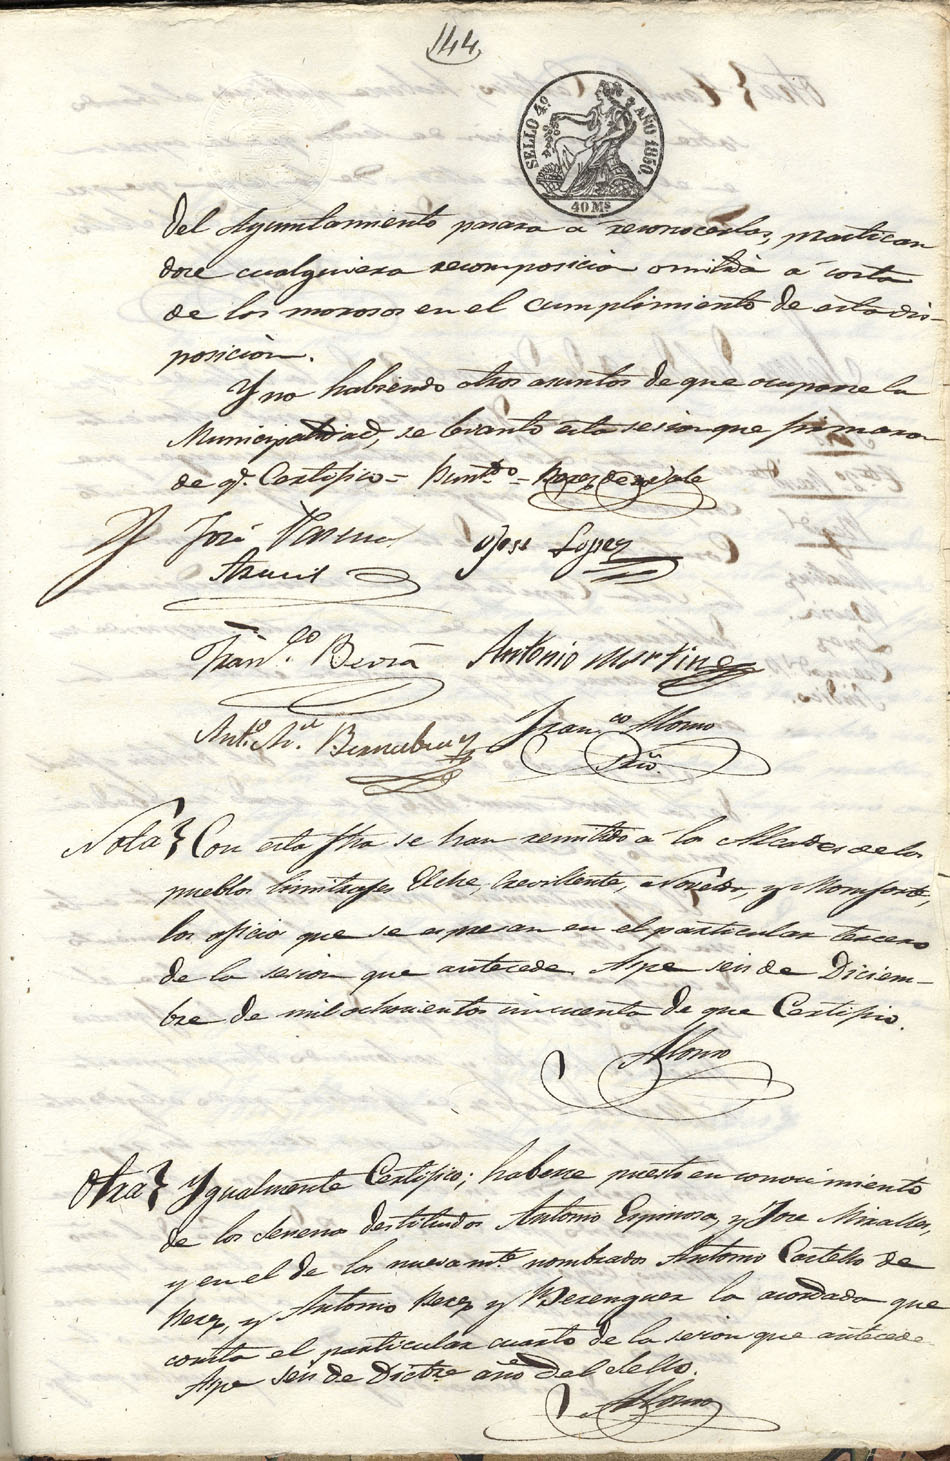 144
SELLO 4º AÑO 1850.
40 Ms
del Ayuntamiento pasara a reconocerlas, practican
dose cualquiera recomposicion omitida a costa
de los morosos en el cumplimiento de esta dis-
posicion.
Y no habiendo otros asuntos de que ocuparse la
Municipalidad, se levantó esta sesion que firmaron
de q. Certifico=
José
José Lopez
Franco. Antonio Martinez
Anto. Ma. Franco Alonso
Srio.
Nota} Con esta fha se han remitido a los Alcaldes de los
pueblos limitrofes Elche, Crevillente, Novelda, y Monforte,
los oficios que se espresan en el particular tercero
de la sesion que antecede. Aspe seis de Diciem-
bre de mil ochocientos cincuenta de que Certifico.
Alonso
Otra} Ygualmente Certifico; haberse puesto en conocimiento
de los Serenos destituidos Antonio Espinosa, y Jose Miralles,
y en el de los nuevamte. nombrados Antonio Castello de
Perez, y Antonio Perez y Berenguer lo acordado que
consta el particular cuarto de la sesion que antecede
Aspe seis de Dicbre. año del Sello.
Alonso